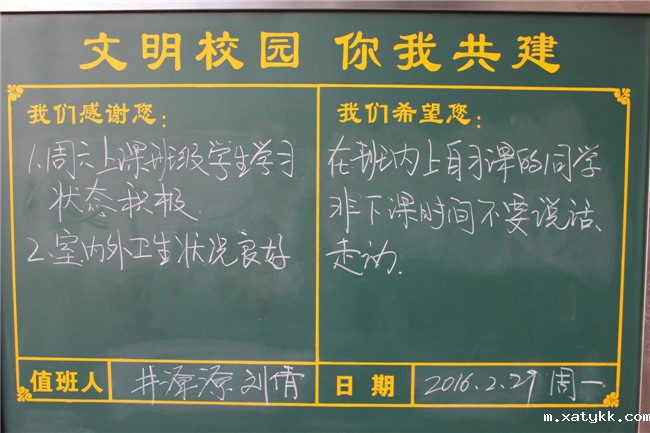 文明校园 你我共建
我们感谢您：
1.周六上课班级学生学习
状态积极.
2.室内外卫生状况良好
我们希望您：
在班内上自习课的同学
非下课时间不要说话、
走动.
值班人
井源源 刘倩
日期
2016.2.29 周一
m.xatykk.com